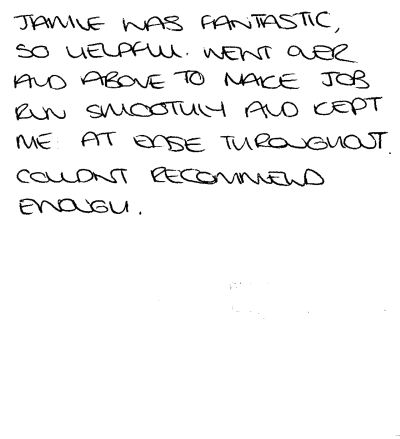 JAMIE WAS FANTASTIC,
SO HELPFUL. WENT OVER
AND ABOVE TO MAKE JOB
RUN SMOOTHLY AND KEPT
ME AT EASE THROUGHOUT.
COULDNT RECOMMEND
ENOUGH.